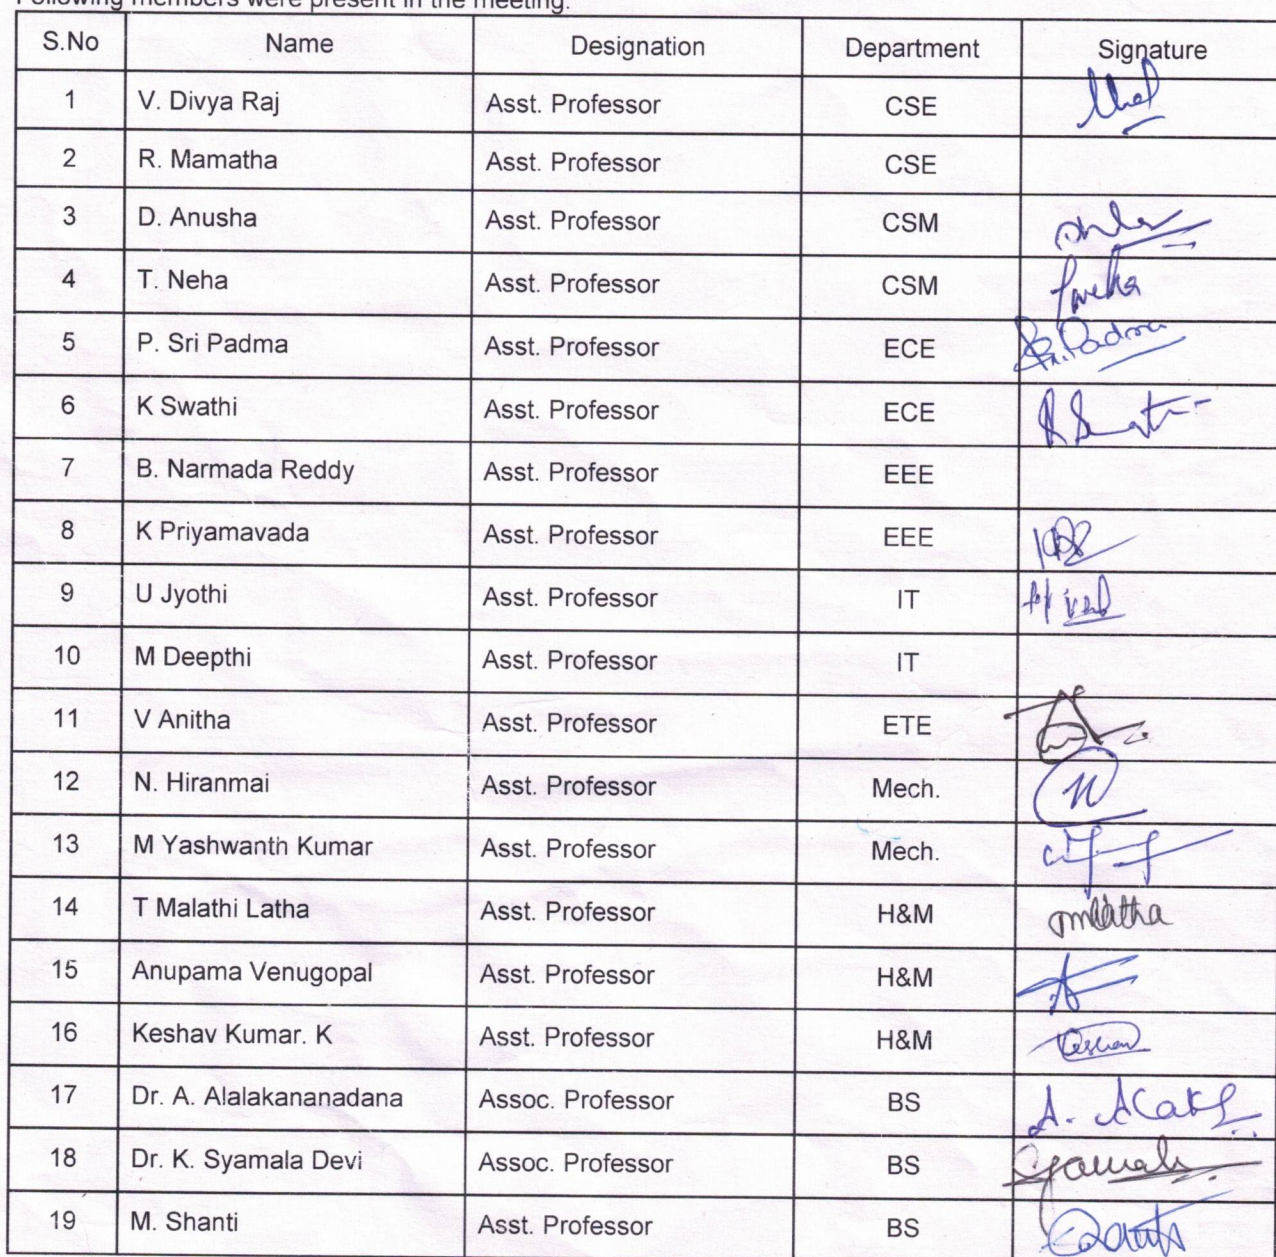 Following members were present in the meeting.
S.No Name Designation Department Signature
1 V. Divya Raj Asst. Professor CSE
2 R. Mamatha Asst. Professor CSE
3 D. Anusha Asst. Professor CSM
4 T. Neha Asst. Professor CSM
5 P. Sri Padma Asst. Professor ECE Sri.Padma
6 K Swathi Asst. Professor ECE
7 B. Narmada Reddy Asst. Professor EEE
8 K Priyamavada Asst. Professor EEE
9 U Jyothi Asst. Professor IT
10 M Deepthi Asst. Professor IT
11 V Anitha Asst. Professor ETE
12 N. Hiranmai Asst. Professor Mech.
13 M Yashwanth Kumar Asst. Professor Mech.
14 T Malathi Latha Asst. Professor H&M
15 Anupama Venugopal Asst. Professor H&M
16 Keshav Kumar. K Asst. Professor H&M
17 Dr. A. Alalakananadana Assoc. Professor BS
18 Dr. K. Syamala Devi Assoc. Professor BS
19 M. Shanti Asst. Professor BS